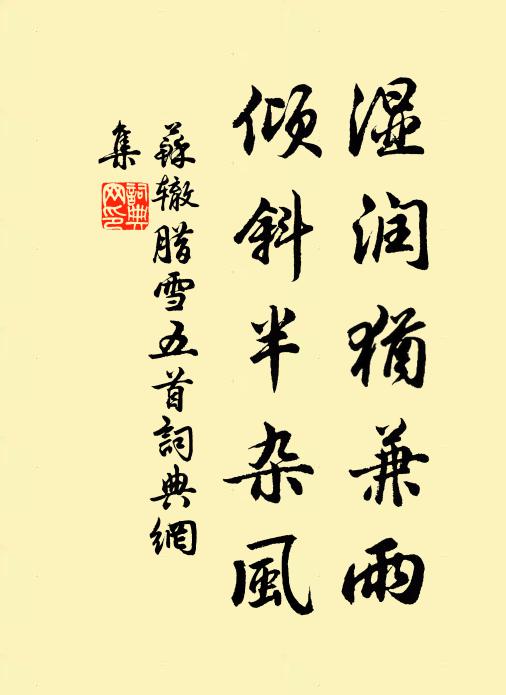 湿润犹兼雨
倾斜半杂風
蘇辙腊雪五首詞典網
集
詞典
网印